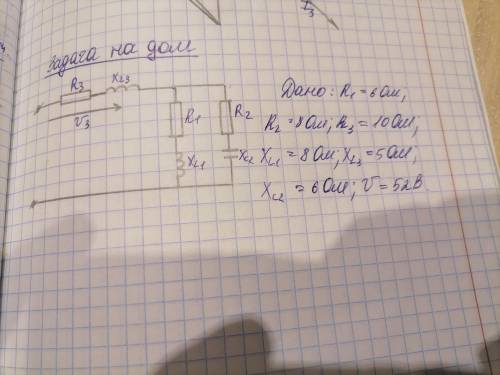 I₃
Задача на дом
R₃ X_L3
V₃
R₁
R₂
X_L1
X_C2
Дано: R₁=6 Ом,
R₂=8 Ом; R₃=10 Ом,
X_L1=8 Ом; X_L3=5 Ом,
X_C2=6 Ом; V=52В